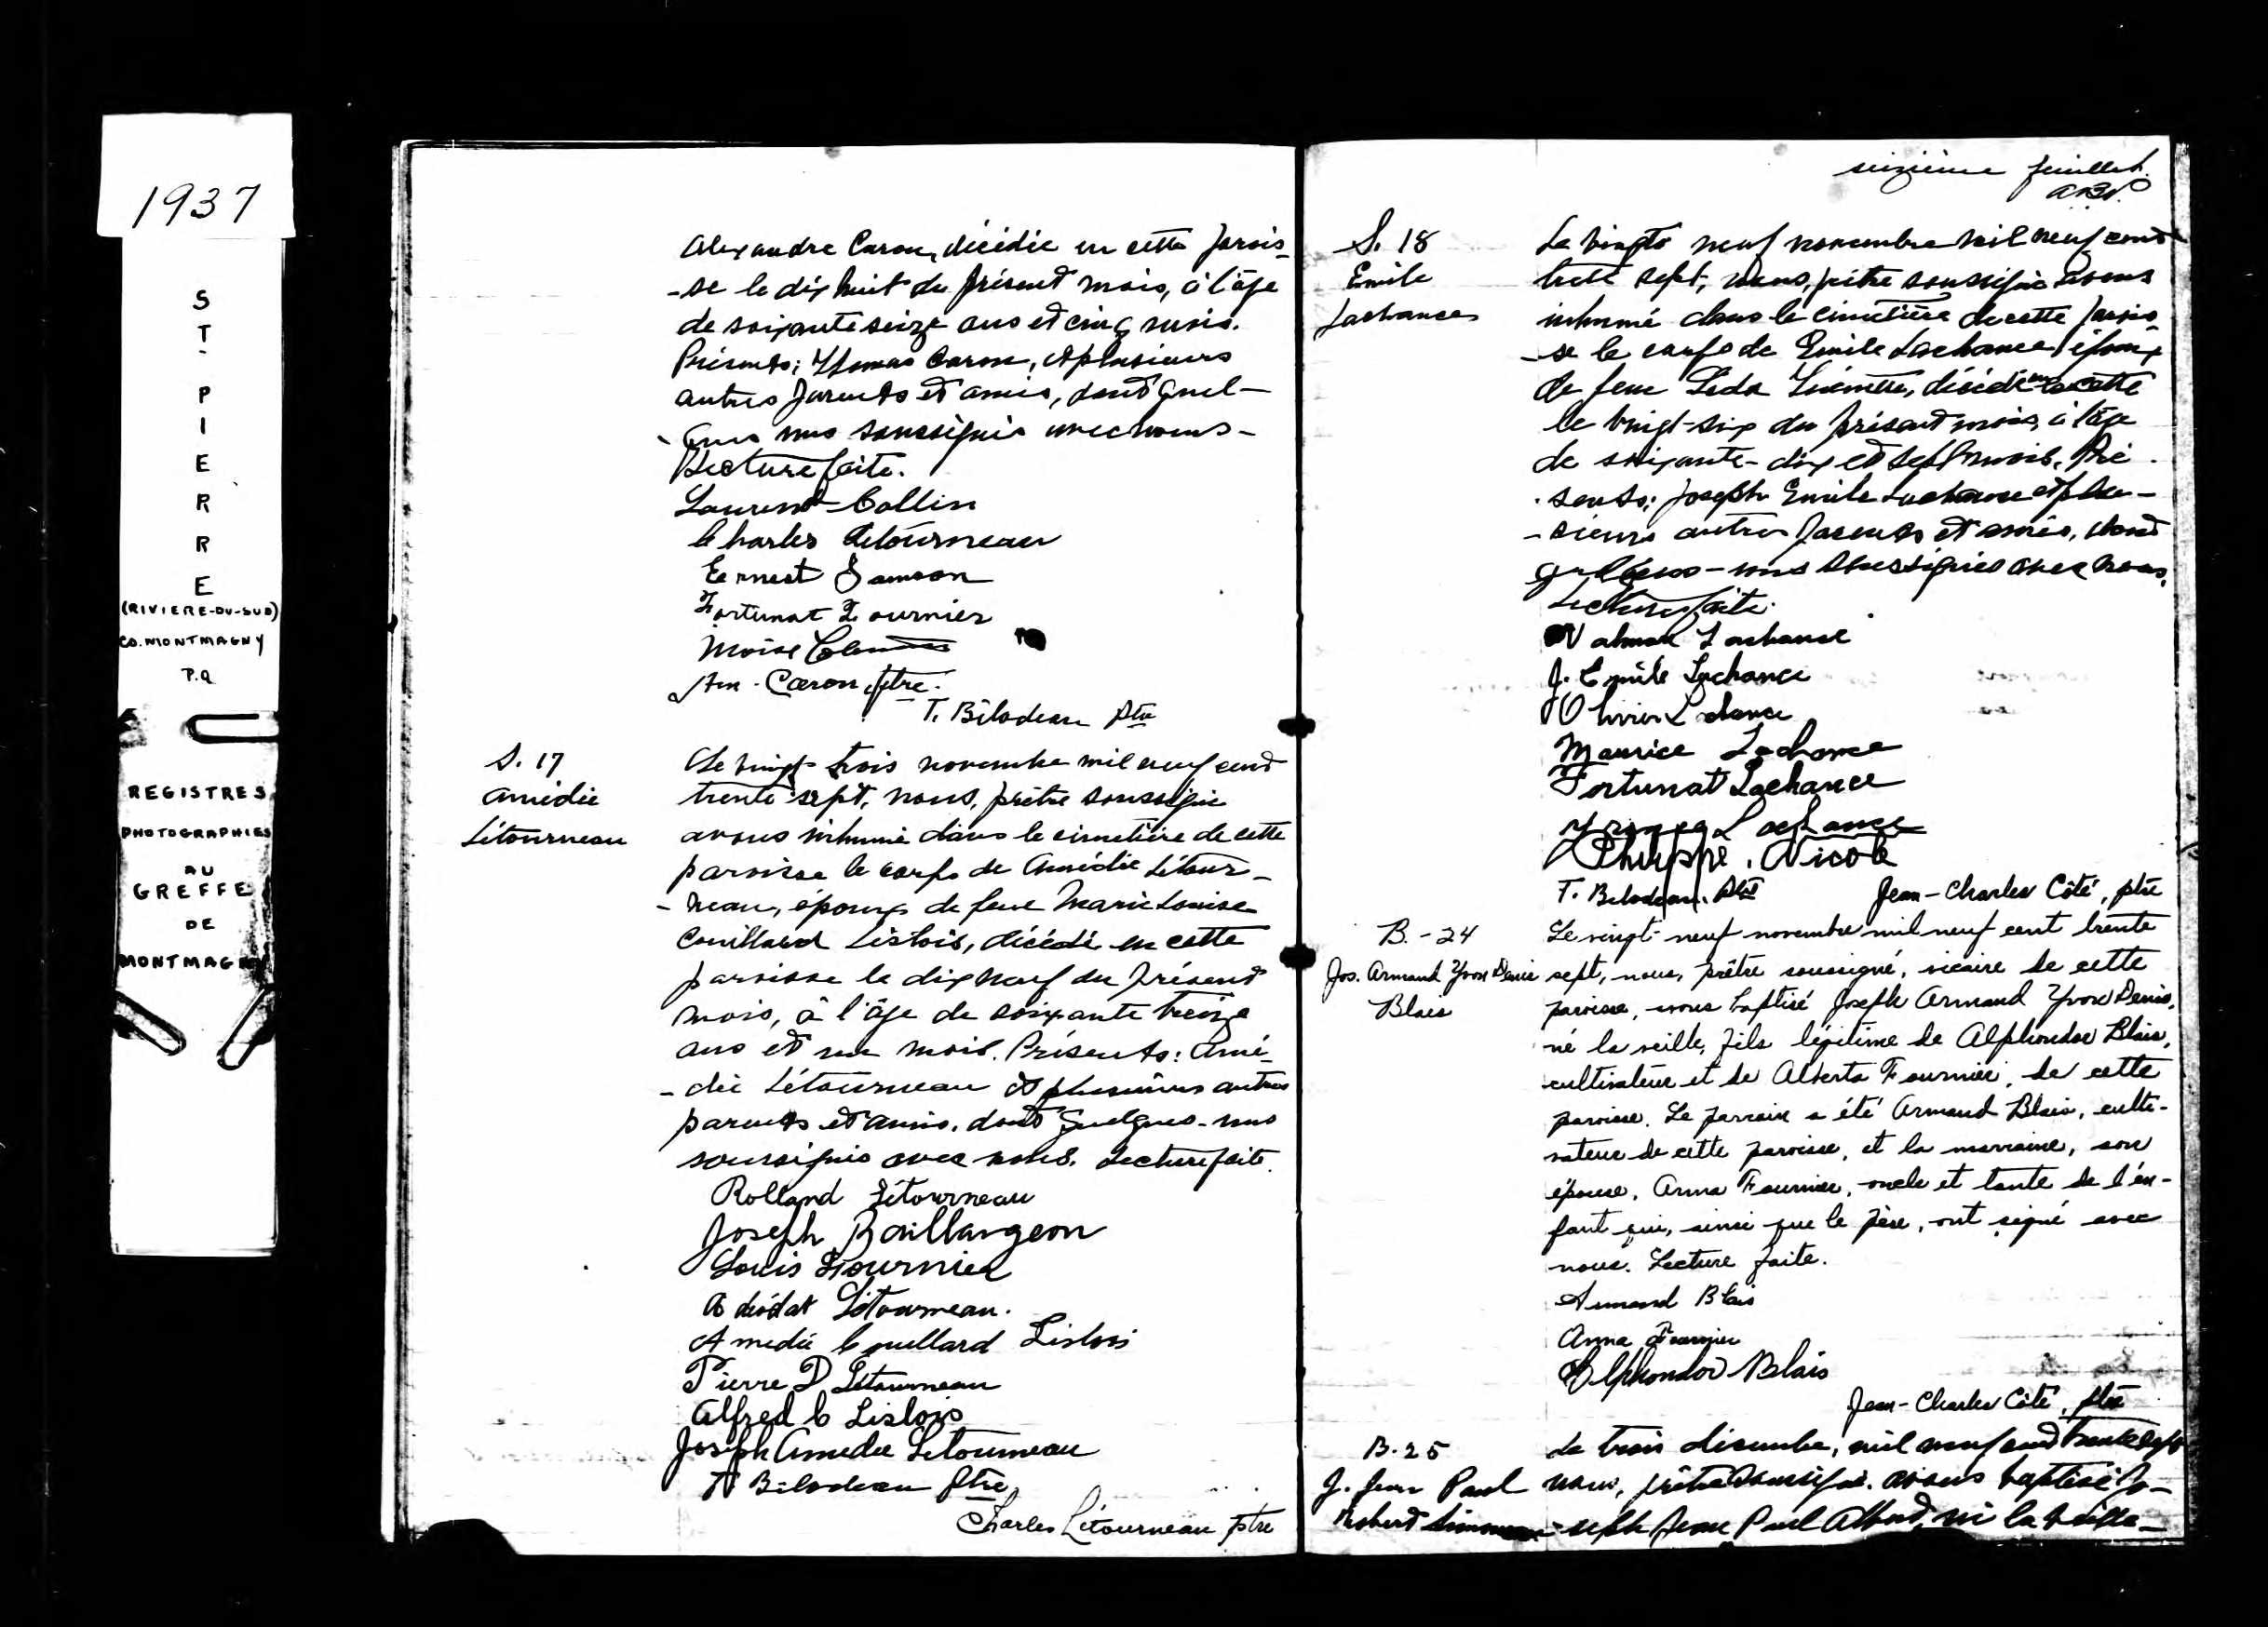 1937
ST-PIERRE
(RIVIERE-DU-SUD)
CO. MONTMAGNY
P.Q
REGISTRES
PHOTOGRAPHIES
AU
GREFFE
DE
MONTMAGNY
Alexandre Caron, décédée en cette parois-
-se le dix huit du présent mois, à l'âge
de soixante seize ans et cinq mois.
Présents: Thomas Caron, et plusieurs
autres parents et amis, dont quel-
-ques uns soussignés avec nous-
Lecture faite.
Laurent Collin
Charles Letourneau
Ernest Samson
Fortunat Fournier
Moïse
Caron ptre.
T. Bélodeau Ptre
S. 17
Amédée
Létourneau
Le vingt trois novembre mil neuf cent
trente sept, nous, prêtre soussigné
avons inhumé dans le cimetière de cette
paroisse le corps de Amédée Létour-
-neau, époux de feue Marie Louise
Couillard Lislois, décédé en cette
paroisse le dix neuf du présent
mois, à l'âge de soixante treize
ans et un mois. Présents: Amé-
-dée Létourneau et plusieurs autres
parents et amis, dont quelques-uns
soussignés avec nous. Lecture faite.
Rolland Létourneau
Joseph Baillargeon
Louis Fournier
Adéodat Létourneau.
Amédée Couillard Lislois
Pierre D Létourneau
Alfred C Lislois
Joseph Amedée Letourneau
T. Bélodeau Ptre
Charles Létourneau ptre
seizième feuillet.
S. 18
Emile
Lachance
Le vingt neuf novembre mil neuf cent
trente sept, nous, prêtre soussigné avons
inhumé dans le cimetière de cette parois-
-se le corps de Emile Lachance époux
de feue Léda décédé en cette
le vingt-six du présent mois, à l'âge
de soixante-dix et sept mois. Pré-
-sents: Joseph Emile Lachance et plu-
-sieurs autres parents et amis, dont
quelques-uns soussignés avec nous.
Lecture faite.
Lachance
J. Emile Lachance
Olivier Lachance
Maurice Lachance
Fortunat Lachance
Lachance
Philippe Nicole
T. Bélodeau. Ptre Jean-Charles Côté, ptre
B.-24
Jos. Armand Yvon Denis
Blais
Le vingt-neuf novembre mil neuf cent trente
sept, nous, prêtre soussigné, vicaire de cette
paroisse, avons baptisé Joseph Armand Yvon Denis,
né la veille, fils légitime de Alphondor Blais,
cultivateur et de Alberta Fournier, de cette
paroisse. Le parrain a été Armand Blais, culti-
vateur de cette paroisse, et la marraine, son
épouse, Anna Fournier, oncle et tante de l'en-
fant qui, ainsi que le père, ont signé avec
nous. Lecture faite.
Armand Blais
Anna Fournier
Alphondor Blais
Jean-Charles Côté, ptre
B.25
J. Jean Paul
Robert
Le trois décembre, mil neuf cent trente sept
nous, prêtre soussigné avons baptisé Jo-
-seph Jean Paul né la veille-